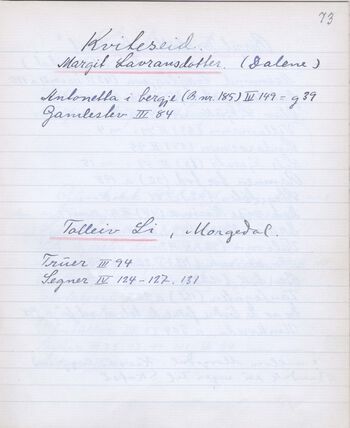 73
Kviteseid.
Margit Lavransdotter. (Dalene)
Antonetta i bergje (B. nr. 185) III 149 = g 39
Gamlestev III 84
Tolleiv Li, Morgedal.
Truer III 94
Segner IV 124-127. 131